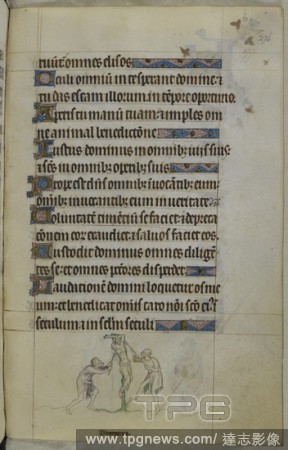 ruunt omnes elisos
Oculi omniu in te sperant domine &
tu das escam illorum in tempore oportuno.
Aperis tu manu tuam & imples om
ne animal benedictone
Iustus dominus in omnib; uiis suis
& scs in omnib; operib; suis
Prope est dns omnib; inuocantib; eum
omib; inuocantib; eum in ueritate
Voluntate timentiu se faciet & depreca
conem eor exaudiet & saluos faciet eos.
Custodit dominus omnes diligen
tes se et omnes pctores disperdet
Laudatione domini loquetur os me
um et benedicat omis caro noi sco eius
seculum & in sclm seculi
TPG
www.tpgnews.com/ 達志影像